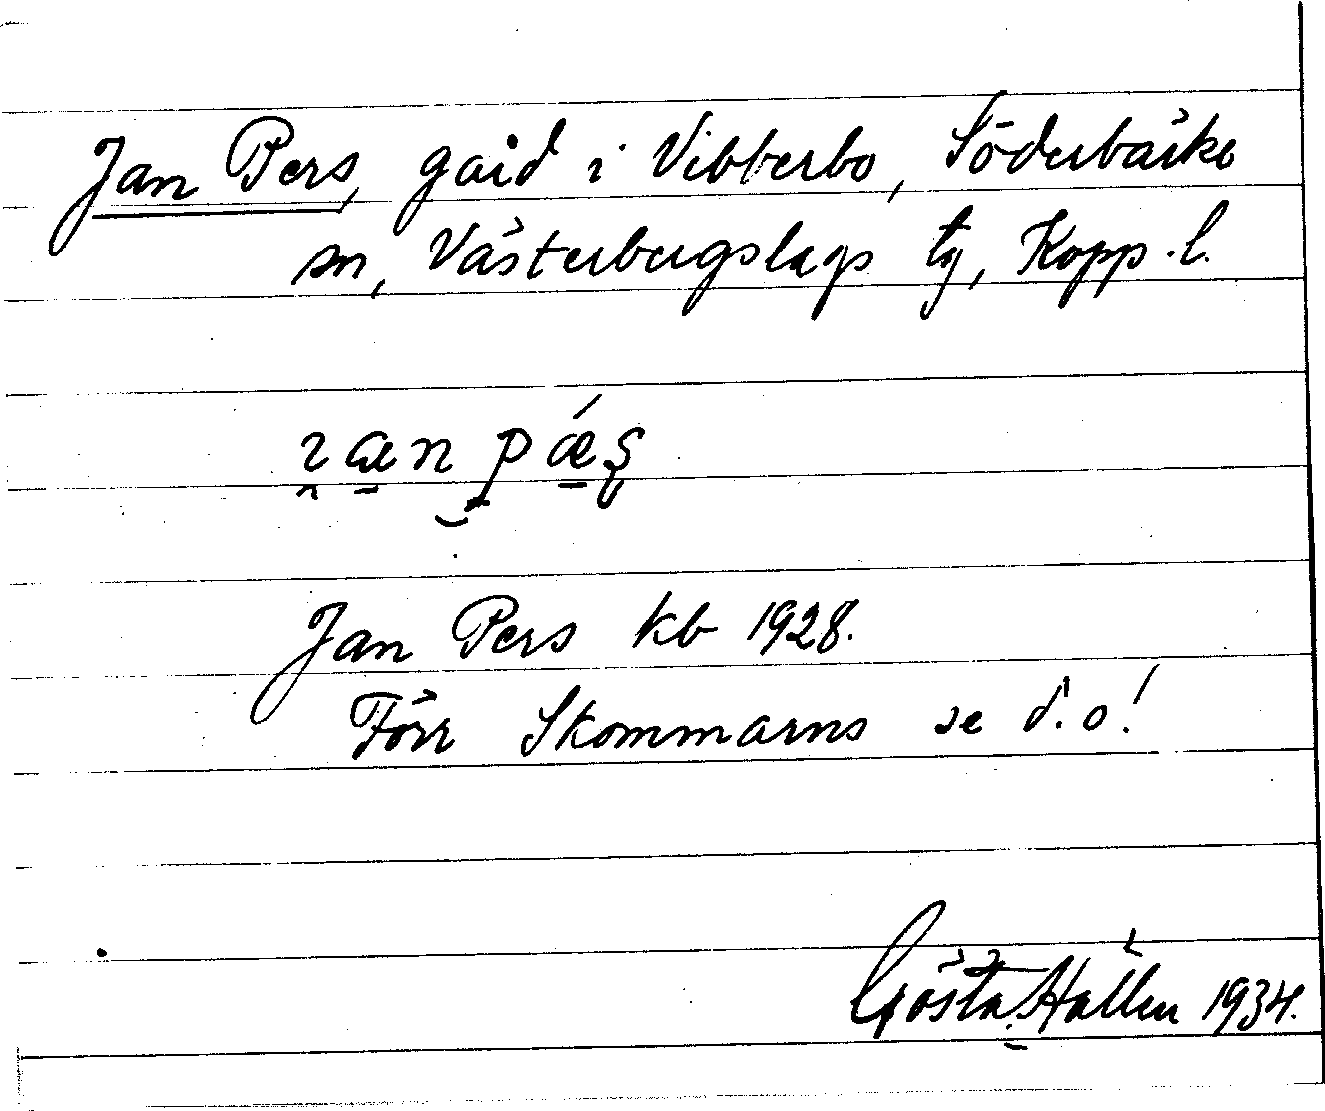 Jan Pers, gård i Vibberbo, Söderbärke
sn, Västerbergslags tg, Kopp. l.
Jan Pers kb 1928.
Förr Skommarns se d. o!
Gösta Hallén 1934.